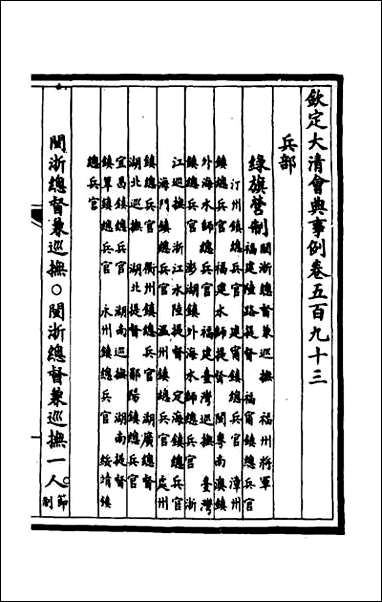 欽定大清會典事例卷五百九十三
兵部
綠旗營制 閩浙總督兼巡撫 福州將軍
福建陸路提督 福甯鎮總兵官
汀州鎮總兵官 建甯鎮總兵官 漳州
鎮總兵官 福建水師提督 閩粤南澳鎮
外海水師總兵官 福建臺灣巡撫 臺灣
鎮總兵官 澎湖鎮外海水師總兵官 浙
江巡撫 浙江水陸提督 定海鎮總兵官
海門鎮總兵官 温州鎮總兵官 處州
鎮總兵官 衢州鎮總兵官 湖廣總督
湖北巡撫 湖北提督 鄖陽鎮總兵官
宜昌鎮總兵官 湖南巡撫 湖南提督
鎮筸鎮總兵官 永州鎮總兵官 綏靖鎮
總兵官
閩浙總督兼巡撫○閩浙總督兼巡撫一人○節制